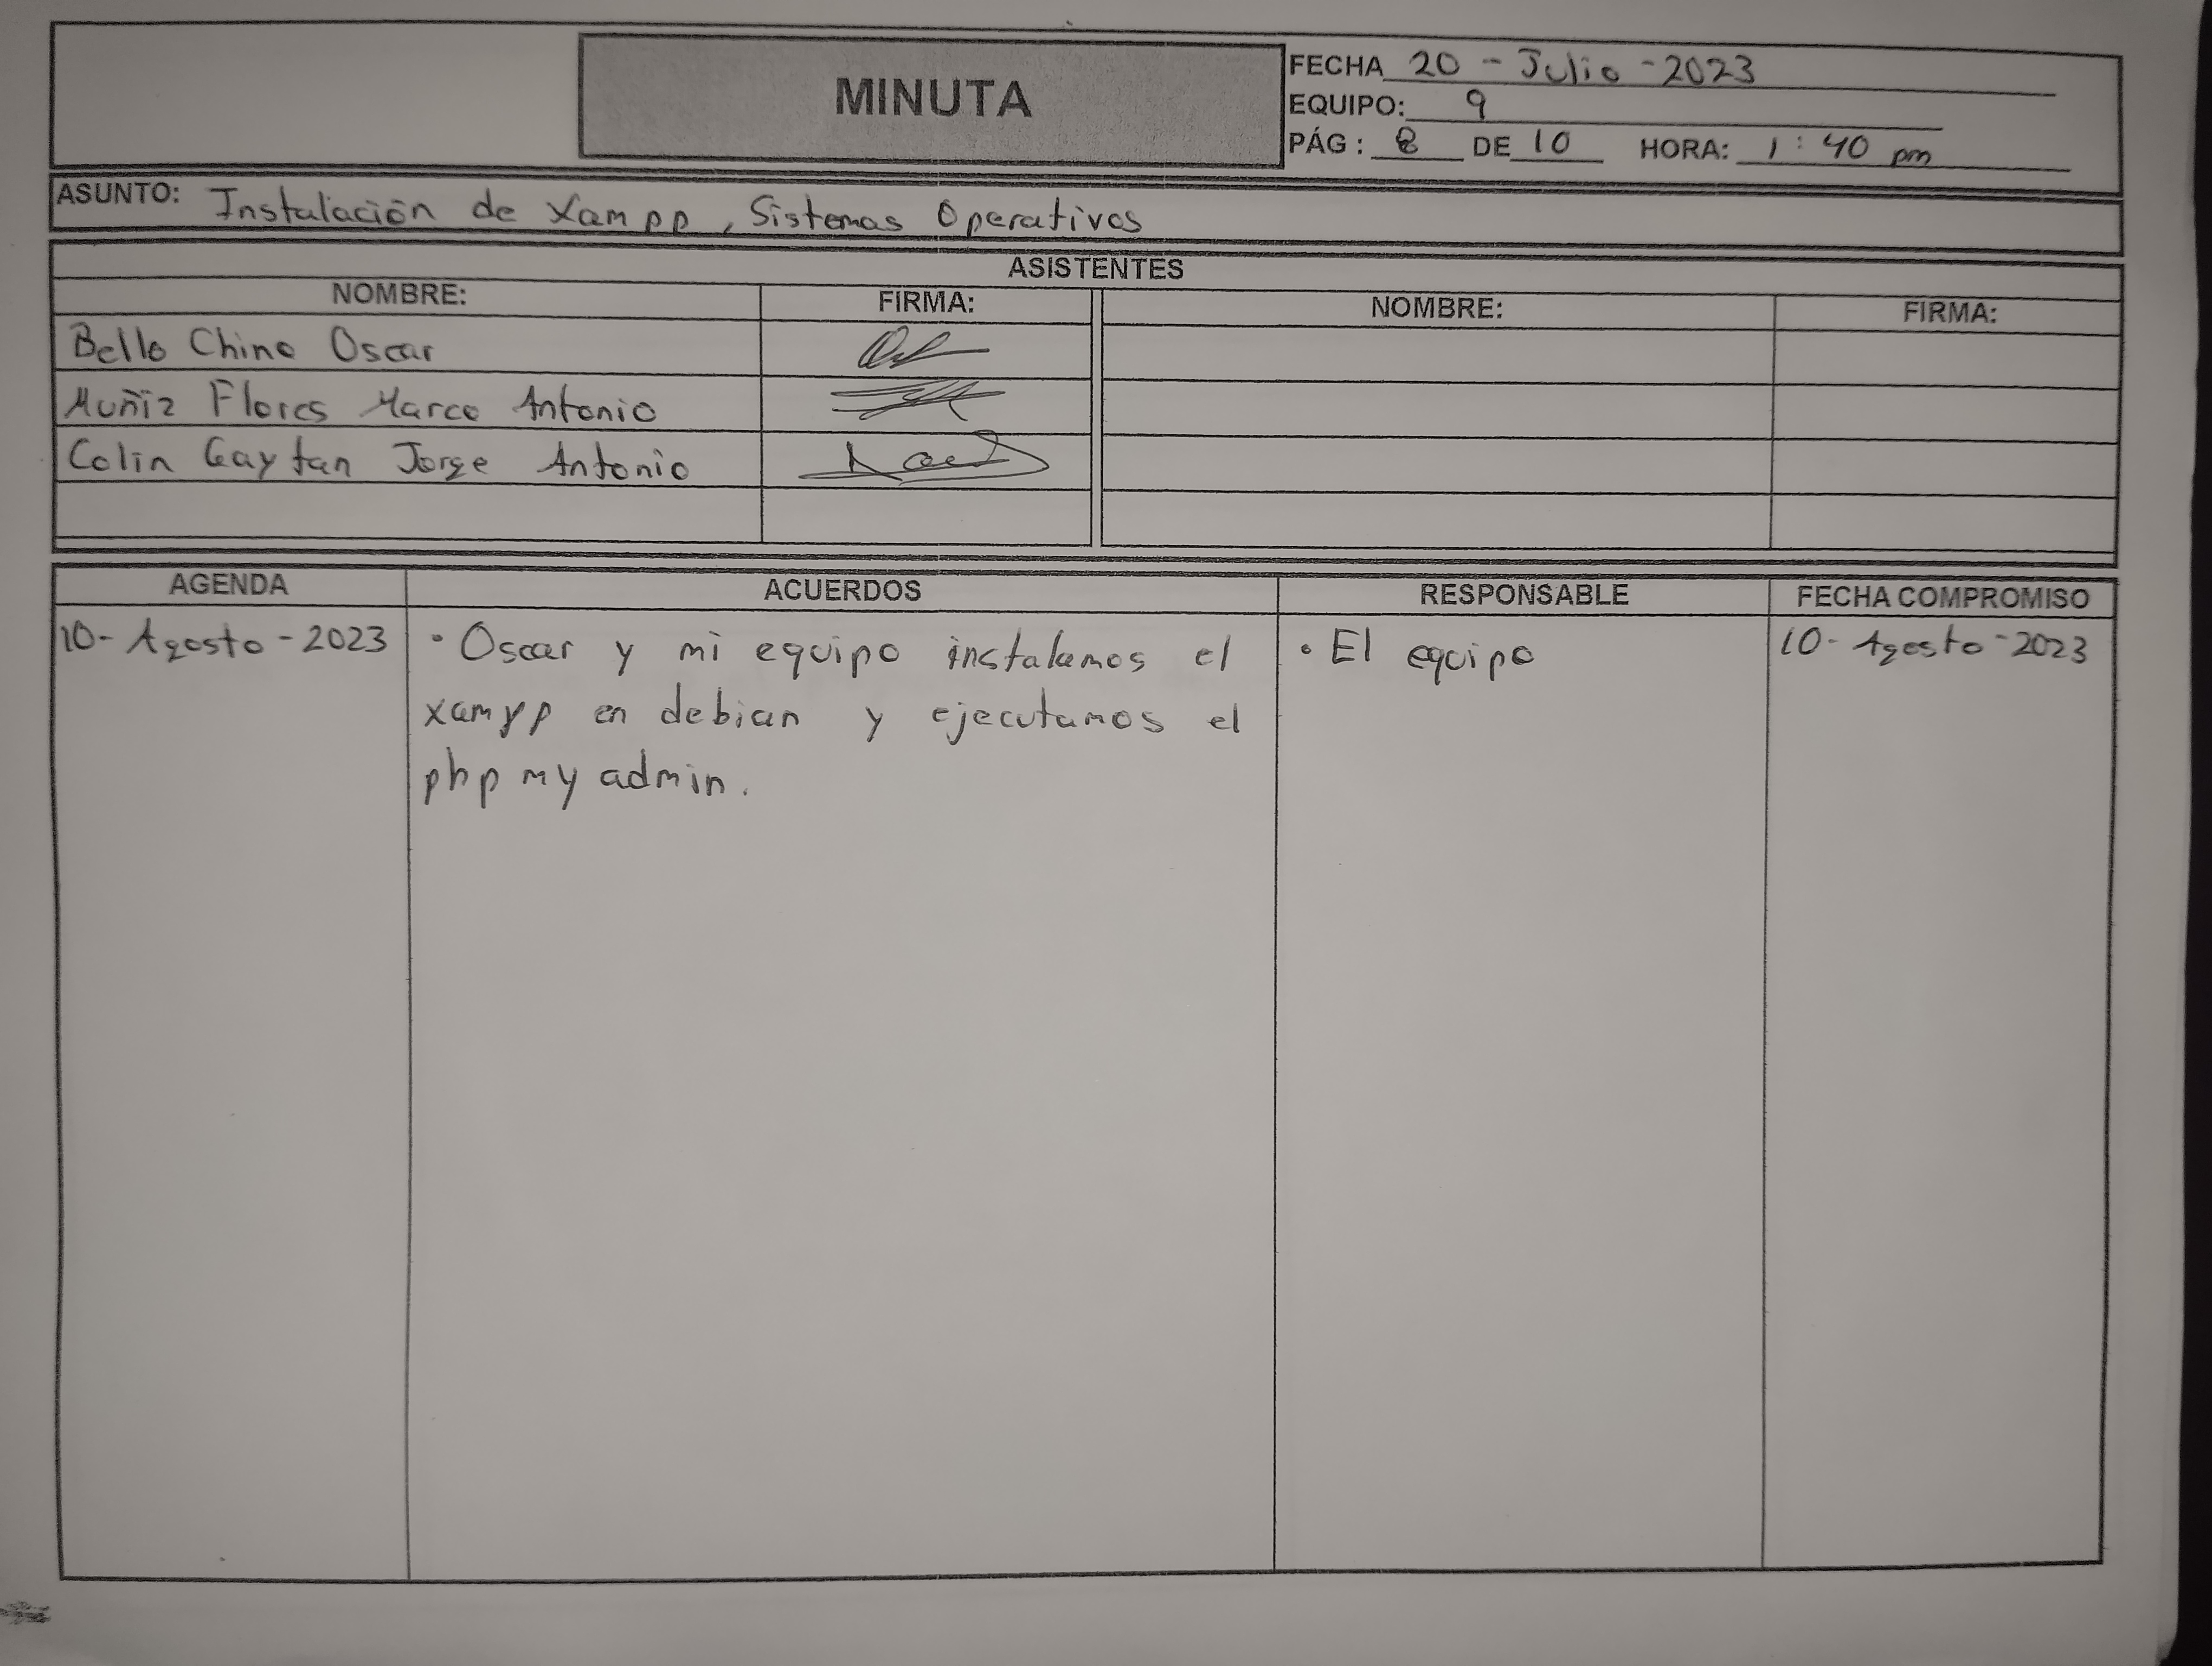 MINUTA
FECHA 20 - Julio - 2023
EQUIPO: 9
PÁG : 8 DE 10 HORA: 1:40 pm
ASUNTO: Instalación de Xampp, Sistemas Operativos
ASISTENTES
NOMBRE: FIRMA: NOMBRE: FIRMA:
Bello Chino Oscar
Muñiz Flores Marco Antonio
Colin Gaytan Jorge Antonio
AGENDA ACUERDOS RESPONSABLE FECHA COMPROMISO
10- Agosto - 2023 • Oscar y mi equipo instalamos el • El equipo 10- Agosto - 2023
xampp en debian y ejecutamos el
php my admin.